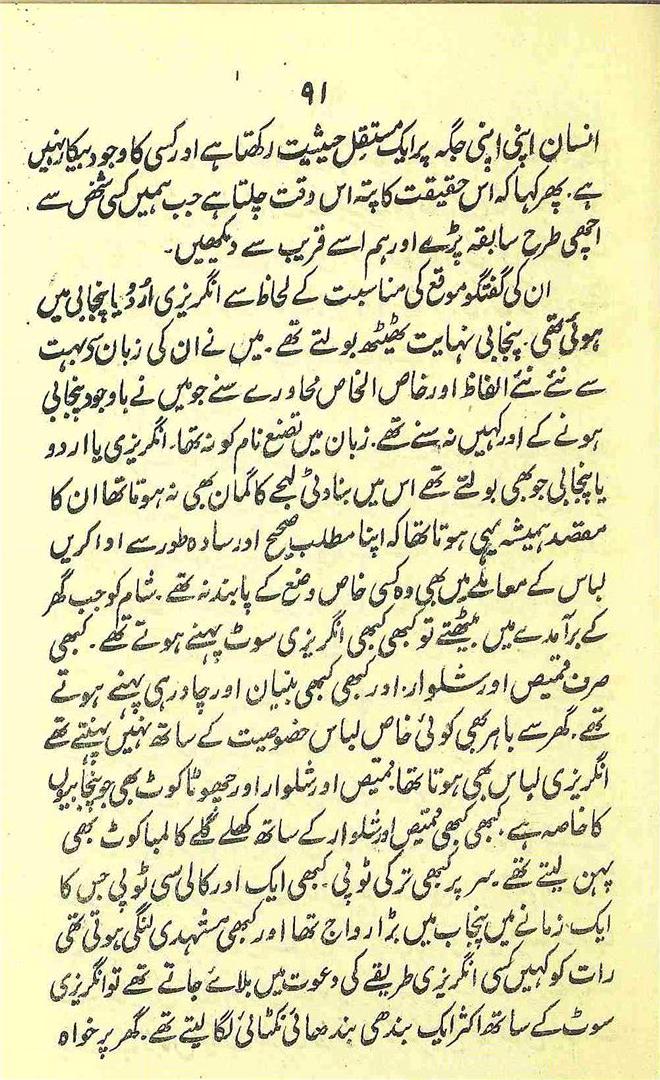 ۹۱
انسان اپنی اپنی جگہ پر ایک مستقل حیثیت رکھتا ہے اور کسی کا وجود بیکار نہیں
ہے. پھر کہا کہ اس حقیقت کا پتہ اس وقت چلتا ہے جب ہمیں کسی شخص سے
اچھی طرح سابقہ پڑے اور ہم اسے قریب سے دیکھیں۔
ان کی گفتگو موقع کی مناسبت کے لحاظ سے انگریزی اُردُو یا پنجابی میں
ہوئی تھی. پنجابی نہایت ٹھیٹھ بولتے تھے. میں نے ان کی زبان سے بہت
سے نئے نئے الفاظ اور خاص الخاص محاورے سنے جو میں نے باوجود پنجابی
ہونے کے اور کہیں نہ سنے تھے. زبان میں تصنع نام کو نہ تھا. انگریزی یا اردو
یا پنجابی جو بھی بولتے تھے اس میں بناوٹی لہجے کا گمان بھی نہ ہوتا تھا ان کا
مقصد ہمیشہ یہی ہوتا تھا کہ اپنا مطلب صحیح اور سادہ طور سے ادا کریں
لباس کے معاملے میں بھی وہ کسی خاص وضع کے پابند نہ تھے. شام کو جب گھر
کے برآمدے میں بیٹھتے تو کبھی کبھی انگریزی سوٹ پہنے ہوتے تھے. کبھی
صرف قمیص اور شلوار. اور کبھی کبھی بنیان اور چادر ہی پہنے ہوتے
تھے. گھر سے باہر بھی کوئی خاص لباس خصوصیت کے ساتھ نہیں پہنتے تھے
انگریزی لباس بھی ہوتا تھا. قمیص اور شلوار اور چھوٹا کوٹ بھی جو پنجابیوں
کا خاصہ ہے. کبھی کبھی قمیص اور شلوار کے ساتھ کھلے گلے کا لمبا کوٹ بھی
پہن لیتے تھے. سر پر کبھی ترکی ٹوپی. کبھی ایک اور کالی سی ٹوپی جس کا
ایک زمانے میں پنجاب میں بڑا رواج تھا اور کبھی مشہدی لنگی ہوتی تھی
رات کو کہیں کسی انگریزی طریقے کی دعوت میں بلائے جاتے تھے تو انگریزی
سوٹ کے ساتھ اکثر ایک بندھی بندھائی نکٹائی لگا لیتے تھے. گھر پر خواہ